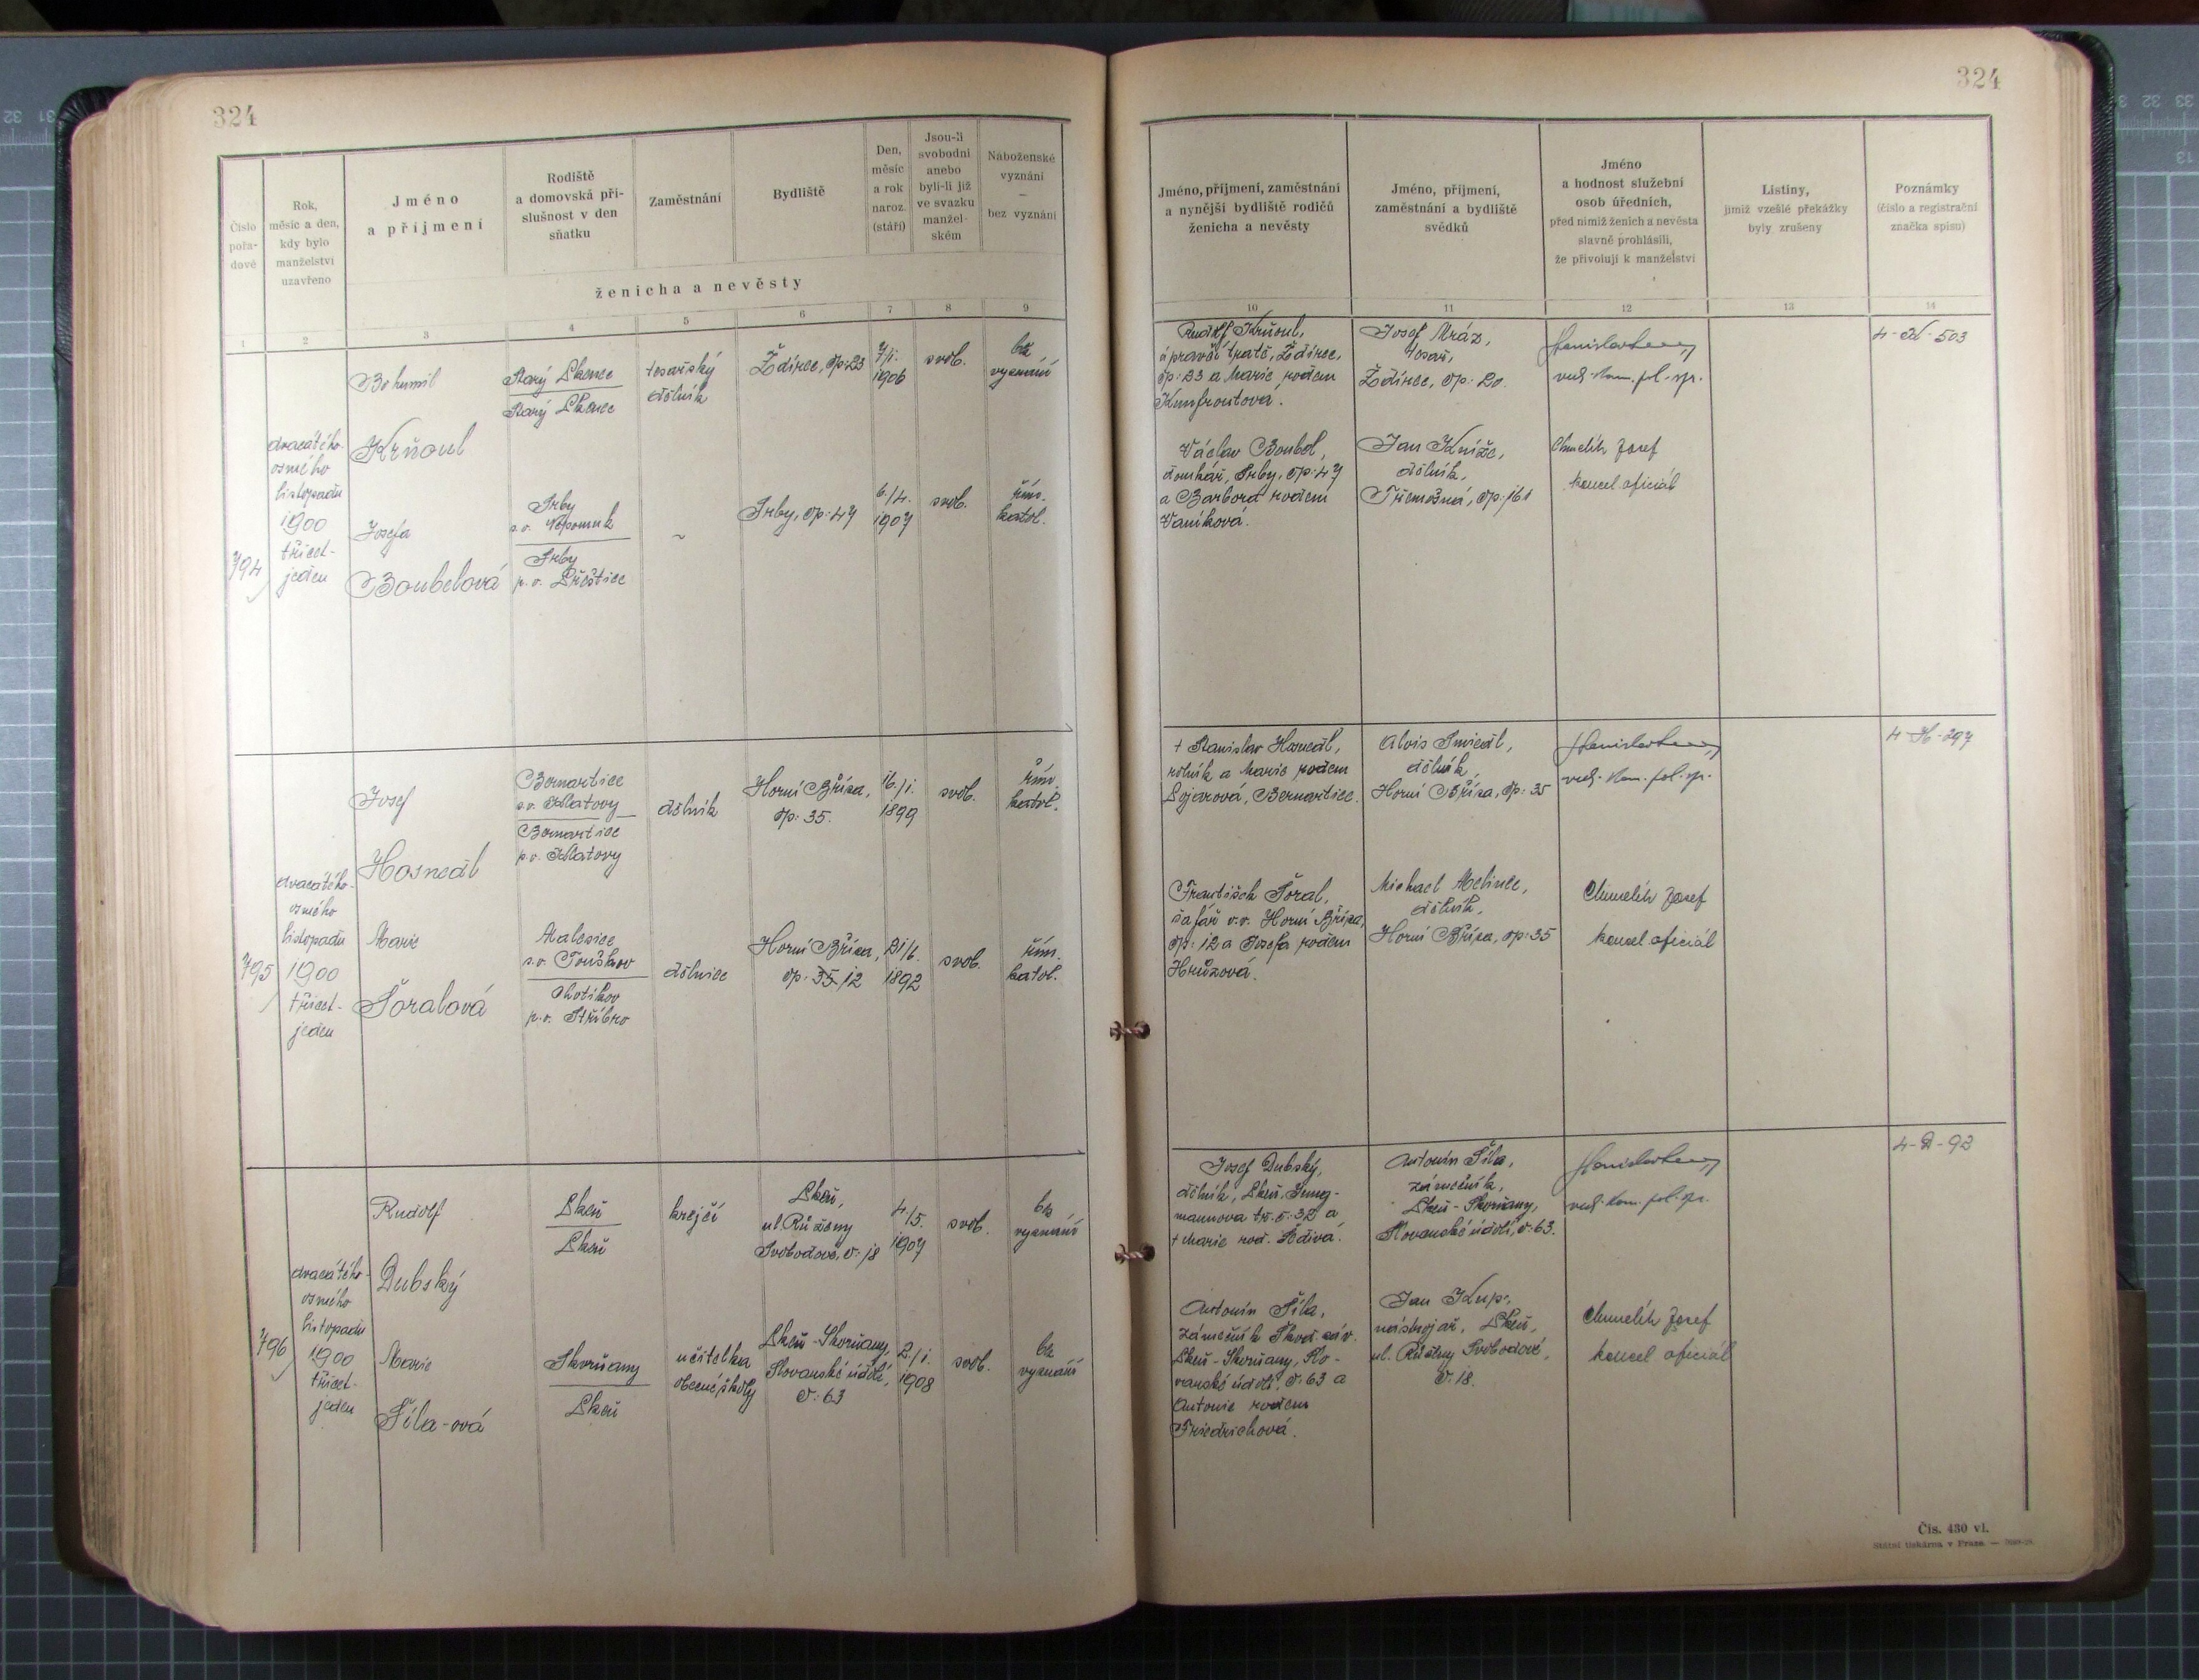 324
324
Číslo
pořa-
dové
Rok,
měsíc a den,
kdy bylo
manželství
uzavřeno
Jméno
a příjmení
Rodiště
a domovská pří-
slušnost v den
sňatku
Zaměstnání
Bydliště
Den,
měsíc
a rok
naroz.
(stáří)
Jsou-li
svobodni
anebo
byli-li již
ve svazku
manžel-
ském
Náboženské
vyznání
—
bez vyznání
ženicha a nevěsty
1 2 3 4 5 6 7 8 9
794
dvacátého-
osmého
listopadu
1900
třicet-
jeden
Bohumil
Krňoul
Starý Plzenec
Starý Plzenec
tesařský
dělník
Ždírec, čp: 23
7/1.
1906
svob.
bez
vyznání
Josefa
Boubelová
Srby
s.o. Nepomuk
Srby
p.o. Přeštice
~
Srby, čp: 47
6./4.
1907
svob.
řím.
katol.
795
dvacátého-
osmého
listopadu
1900
třicet-
jeden
Josef
Hosnedl
Bernartice
s.o. Klatovy
Bernartice
p.o. Klatovy
dělník
Horní Bříza,
čp: 35.
16./1.
1899
svob.
řím.
katol.
Marie
Šoralová
Malesice
s.o. Touškov
Chotíkov
p.o. Stříbro
dělnice
Horní Bříza,
čp: 35 12
21/6.
1892
svob.
řím.
katol.
796
dvacátého-
osmého
listopadu
1900
třicet-
jeden
Rudolf
Dubský
Plzeň
Plzeň
krejčí
Plzeň,
ul. Růženy
Svobodové, č: 18
4/5.
1907
svob.
bez
vyznání
Marie
Šíla-ová
Skvrňany
Plzeň
učitelka
obecné školy
Plzeň-Skvrňany,
Slovanské údolí,
č: 63
2/1.
1908
svob.
bez
vyznání
Jméno, příjmení, zaměstnání
a nynější bydliště rodičů
ženicha a nevěsty
Jméno, příjmení,
zaměstnání a bydliště
svědků
Jméno
a hodnost služební
osob úředních,
před nimiž ženich a nevěsta
slavně prohlásili,
že přivolují k manželství
Listiny,
jimiž vzešlé překážky
byly zrušeny
Poznámky
(číslo a registrační
značka spisu)
10 11 12 13 14
Rudolf Krňoul,
úpravčí tratě, Ždírec,
čp: 23 a Marie rodem
Kunfroutová.
Josef Mráz,
tesař,
Ždírec, čp: 20.
4-K-503
Václav Boubel,
domkář, Srby, čp: 47
a Barbora rodem
Vaníková.
Jan Kníže,
dělník,
Třemošná, čp: 161
Chmelík Josef
kancel. oficiál
+ Stanislav Hosnedl,
rolník a Marie rodem
Lojarová, Bernartice.
Alois Smiedl,
dělník,
Horní Bříza, čp: 35
4-H-297
František Šoral,
šafář v.v. Horní Bříza,
čp: 12 a Josefa rodem
Hrůzová.
Michael Melinec,
dělník,
Horní Bříza, čp: 35
Chmelík Josef
kancel. oficiál
Josef Dubský,
dělník, Plzeň, Jung-
mannova tř. č: 32 a
+ Marie rod. Šedivá.
Antonín Šíla,
zámečník,
Plzeň-Skvrňany,
Slovanské údolí, č: 63.
4-D-92
Antonín Šíla,
zámečník Škod. záv.
Plzeň-Skvrňany, Slo-
vanské údolí, č: 63 a
Antonie rodem
Friedrichová.
Jan Kup,
nástrojař, Plzeň,
ul. Růženy Svobodové,
č: 18.
Chmelík Josef
kancel. oficiál
Čís. 430 vl.
Státní tiskárna v Praze. —